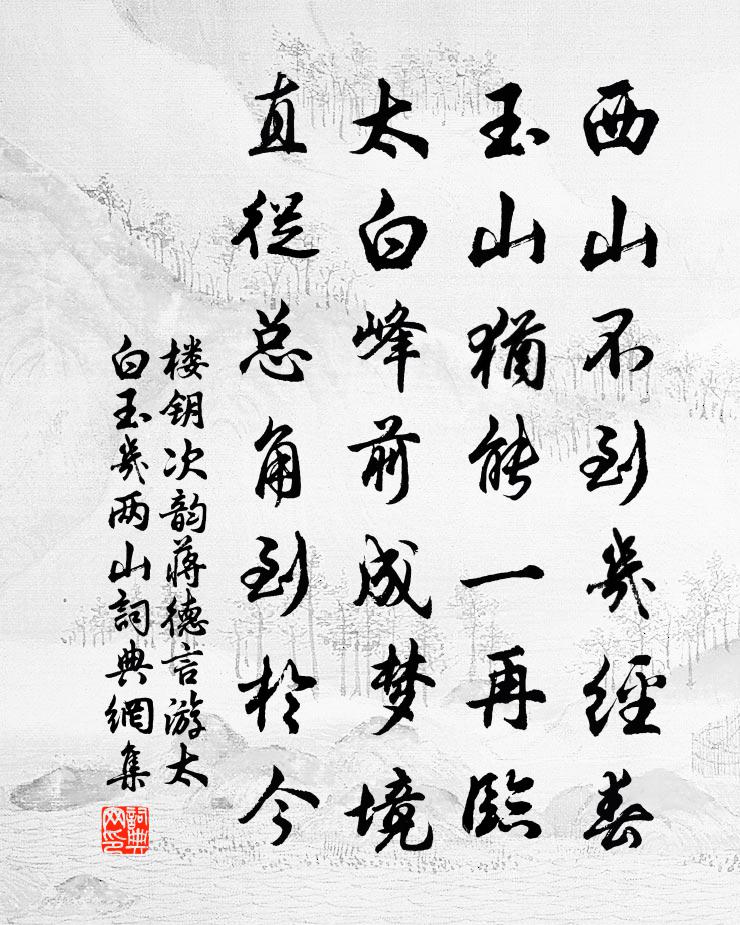 西山不到幾經春
玉山猶能一再臨
太白峰前成梦境
直從总角到於今
楼钥次韵蒋德言游太
白玉幾两山詞典網集
詞典网印